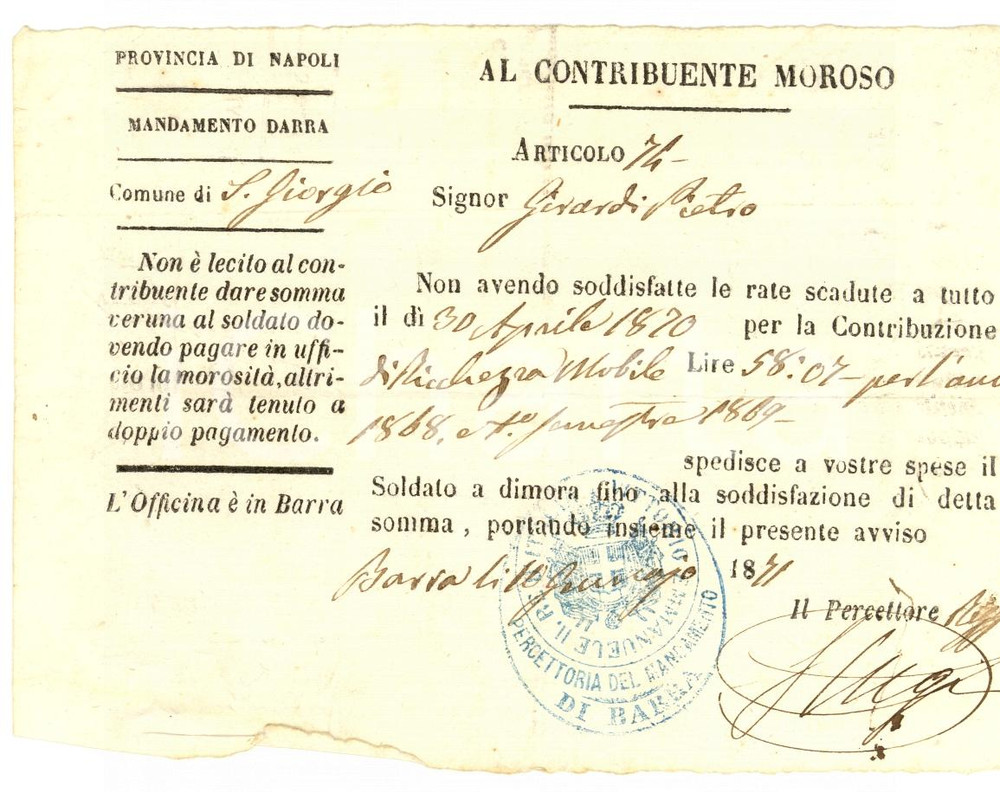 PROVINCIA DI NAPOLI
MANDAMENTO DARRA
Comune di S. Giorgio
Non è lecito al con-
tribuente dare somma
veruna al soldato do-
vendo pagare in uffi-
cio la morosità, altri-
menti sarà tenuto a
doppio pagamento.
L'Officina è in Barra
AL CONTRIBUENTE MOROSO
ARTICOLO 74-
Signor Girardi Pietro
Non avendo soddisfatte le rate scadute a tutto
il dì 30 Aprile 1870 per la Contribuzione
di Ricchezza Mobile Lire 58:07- per l'
1868, e 1º semestre 1869-
spedisce a vostre spese il
Soldato a dimora fino alla soddisfazione di detta
somma, portando insieme il presente avviso
Barra li 10 1871
Il Percettore
VITTORIO EMMANUELE II. RE
PERCETTORIA DEL MANDAMENTO
DI BARRA